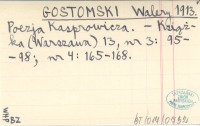 GOSTOMSKI Walery 1913.
Poezja Kasprowicza. - Książ-
ka (Warszawa) 13, nr 3: 95-
-98; nr 4: 165-168.
WHP
BZ